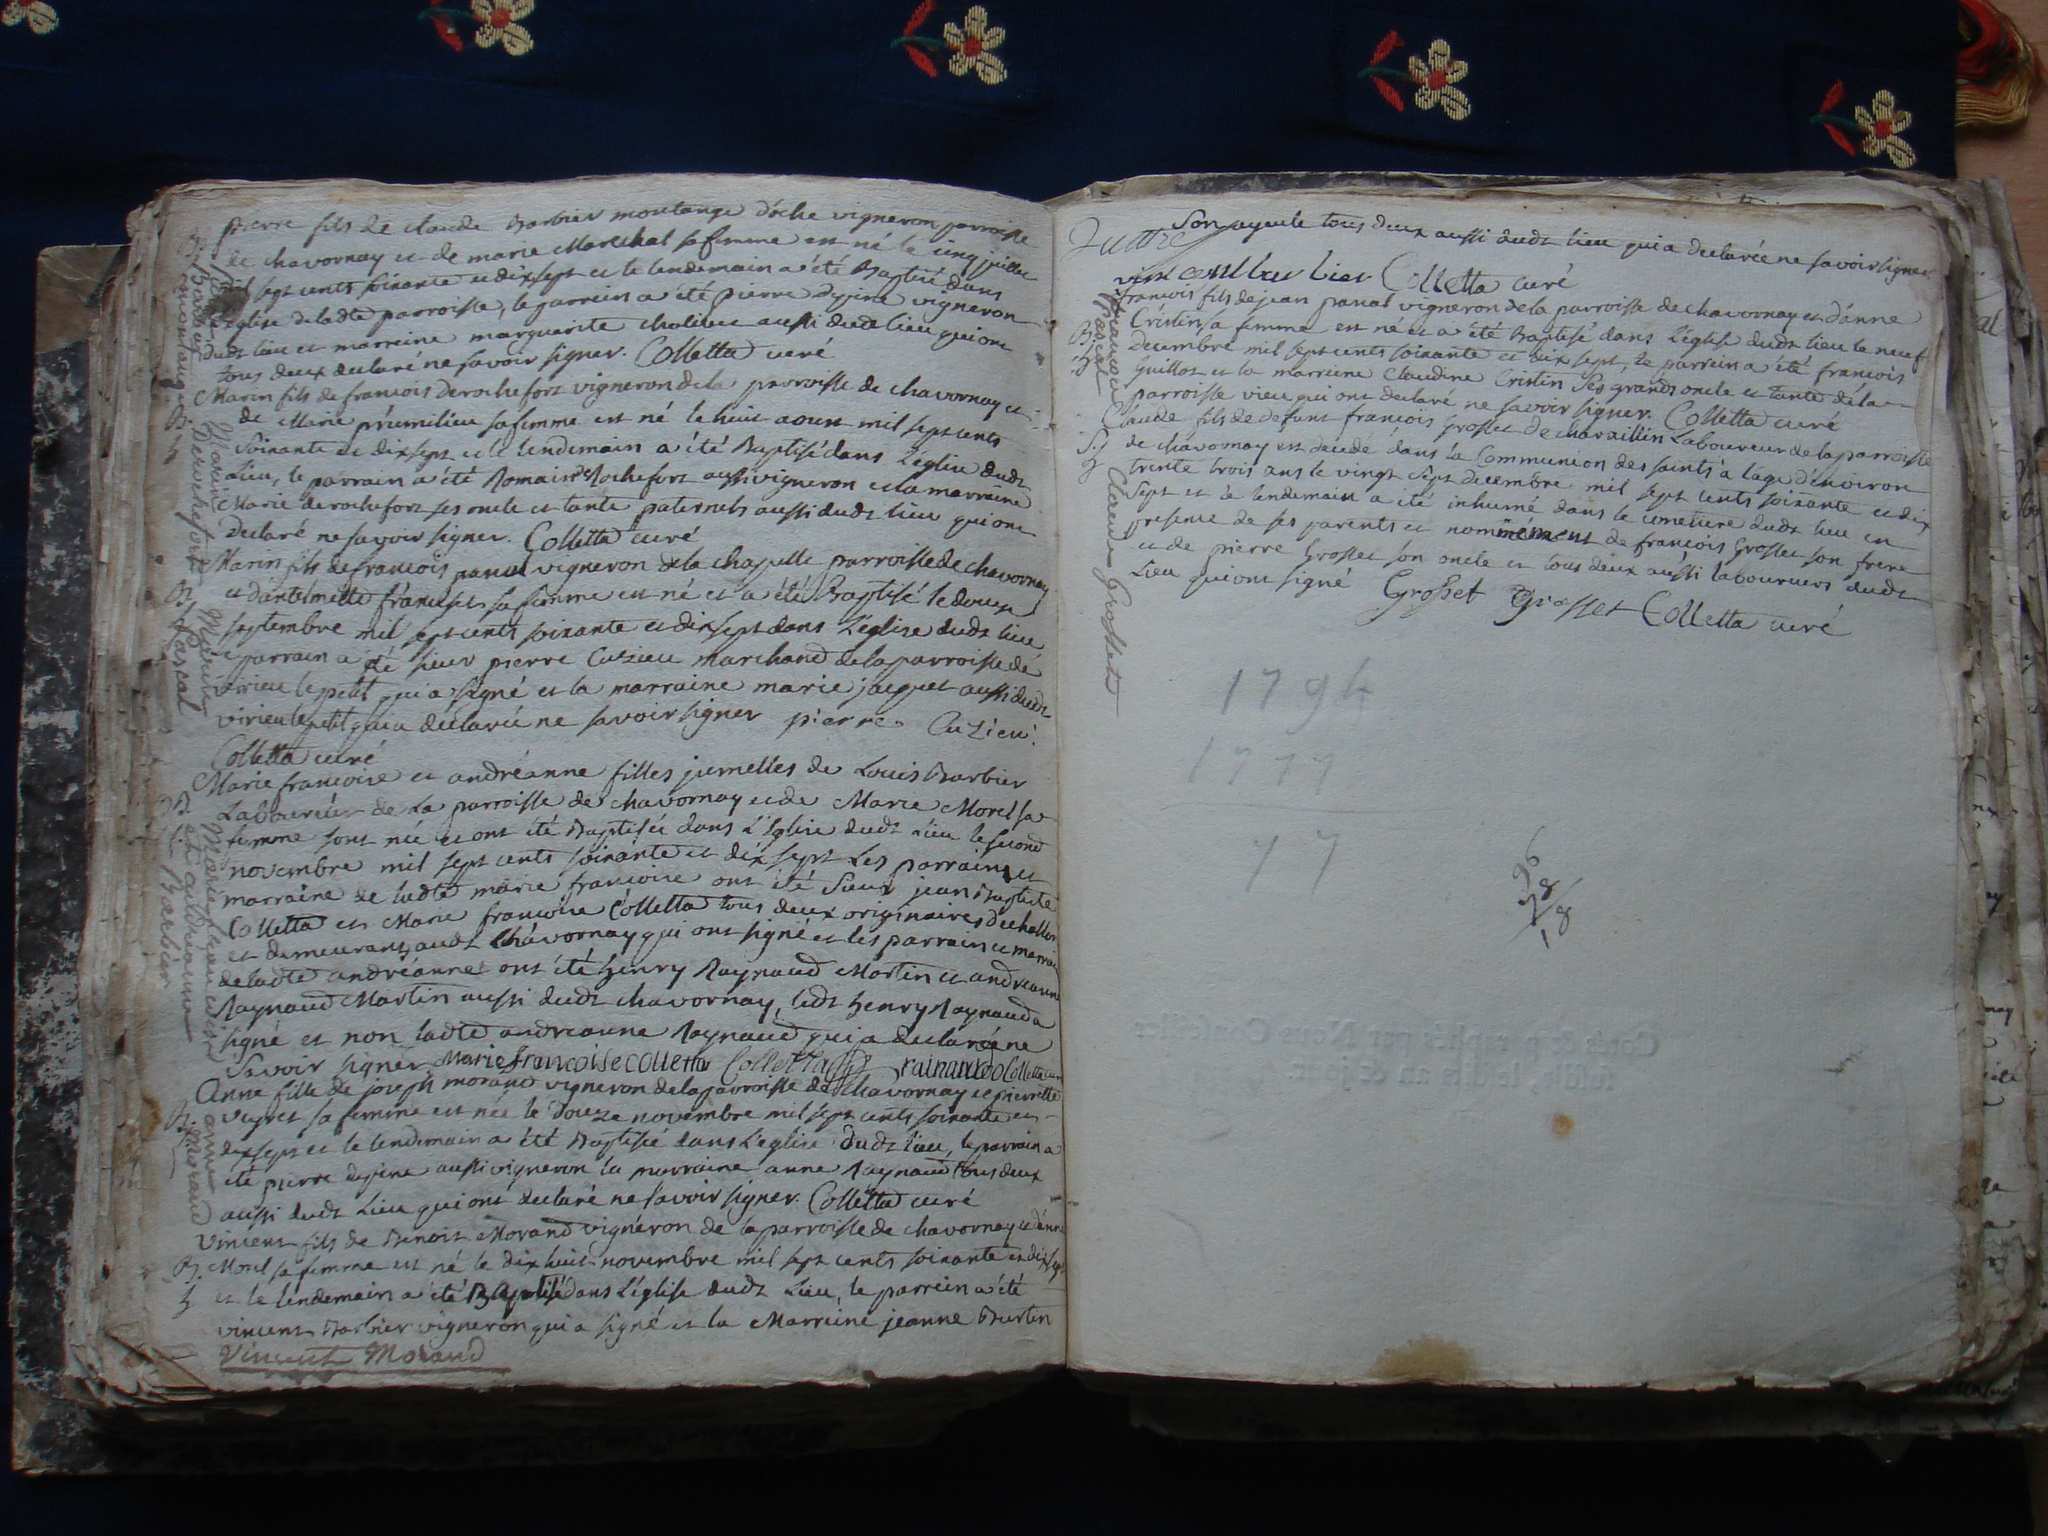 pierre fils de claude Barbier moutange d'oche vigneron parroisse
de chavornay et de marie Marechal sa femme est né le cinq juillet
mil sept cents soixante et dix sept et le lendemain a été Baptisé dans
l'eglise de ladte parroisse, le parrein a été pierre vigneron
dudt lieu et marreine marguerite aussi dudt lieu qui ont
tous deux declaré ne savoir signer. Colletta curé
Marin fils de francois Derochefort vigneron de la parroisse de chavornay et
de Marie prémilieu sa femme est né le huit aoust mil sept cents
Soixante et dix sept et le lendemain a été Baptisé dans l'eglise dudt
Lieu, le parrain a été Romain Rochefort aussi vigneron et la marraine
Marie derochefort ses oncle et tante paternels aussi dudt lieu qui ont
declaré ne savoir signer. Colletta curé
Marin fils de francois pascal vigneron de la chapelle parroisse de chavornay
et sa femme est né et a été Baptisé le douze
septembre mil sept cents soixante et dix sept dans L'eglise dudt lieu
le parrain a été sieur pierre Cuzieu marchand de la parroisse de
virieu le petit qui a signé et la marraine marie jacquet aussi dudt
virieu le petit qui a declaré ne savoir signer pierre Cuzieu
Colletta curé
Marie francoise et andréanne filles jumelles de Louis Barbier
Laboureur de La parroisse de chavornay et de Marie Morel sa
femme sont née et ont été Baptisée dans L'Eglise dudt Lieu le second
novembre mil sept cents soixante et dix sept Les parrain et
marraine de ladte marie francoise ont été Sieur jean Baptiste
Colletta et Marie francoise Colletta tous deux originaires
et demeurants audt chavornay qui ont signé et les parrain et marraine
de ladte andréanne ont été henry Raynaud Martin et andreanne
Raynaud Martin aussi dudt chavornay, ledt henry Raynaud a
signé et non ladte andreanne Raynaud qui a declaré ne
Savoir signer Marie francoise colletta Colletta rainaud Colletta curé
Anne fille de joseph morand vigneron de la parroisse de chavornay et pierrette
sa femme est née le douze novembre mil sept cents soixante et
dix sept et le lendemain a été Baptisée dans L'eglise dudt lieu, le parrain a
été pierre aussi vigneron la marraine anne Raynaud tous deux
aussi dudt Lieu qui ont declaré ne savoir signer. Colletta curé
Vincent fils de Benoit Morand vigneron de la parroisse de chavornay et d'anne
Morel sa femme est né le dix huit novembre mil sept cents soixante et dix sept
et le lendemain a été Baptisé dans L'église dudt Lieu, le parrein a été
vincent Barbier vigneron qui a signé et la Marreine jeanne Burtin
Vincent Morand
Marin
Derochefort
Marin
Pascal
Marie francoise
et andreanne
Barbier
anne
morand
Son ayeule tous deux aussi dudt lieu qui a declarée ne savoir signer
vincent barbier Colletta curé
francois fils de jean pascal vigneron de la parroisse de chavornay et d'anne
Cristin sa femme est né et a été Baptisé dans L'église dudt lieu le neuf
decembre mil sept cents soixante et dix sept, le parrein a été francois
Guillot et la marreine Claudine Cristin Ses grands oncle et tante de la
parroisse vieu qui ont declaré ne savoir signer. Colletta curé
Claude fils de defunt francois Grosset de charaillin Laboureur de la parroisse
de chavornay est decedé dans la Communion des saints à l'age d'environ
trente trois ans le vingt Sept decembre mil sept cents soixante et dix
Sept et le lendemain a été inhumé dans le cimetiere dudt lieu en
presence de ses parents et nommément de francois Grosset son frere
et de pierre Grosset son oncle et tous deux aussi laboureurs dudt
Lieu qui ont signé Grosset Grosset Colletta curé
francois
Pascal
Claude Grosset
1794
1777
17
96
78
18